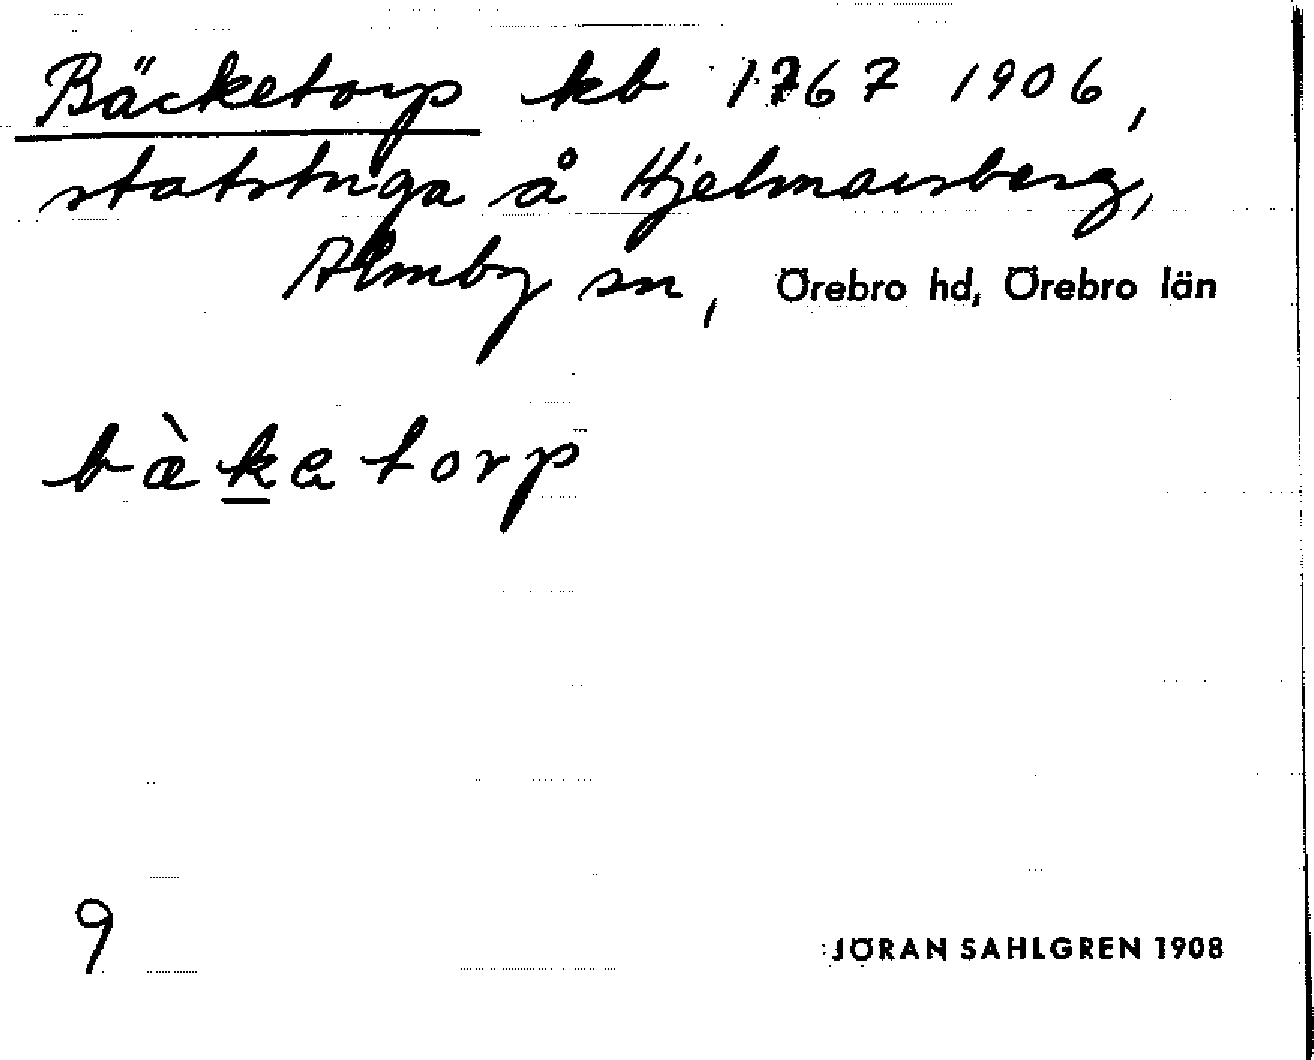 Bäcketorp kb 1767 1906,
statstuga å Hjelmarsberg,
Almby sn, Örebro hd, Örebro län
bæ̀ḵetorp
9
JÖRAN SAHLGREN 1908